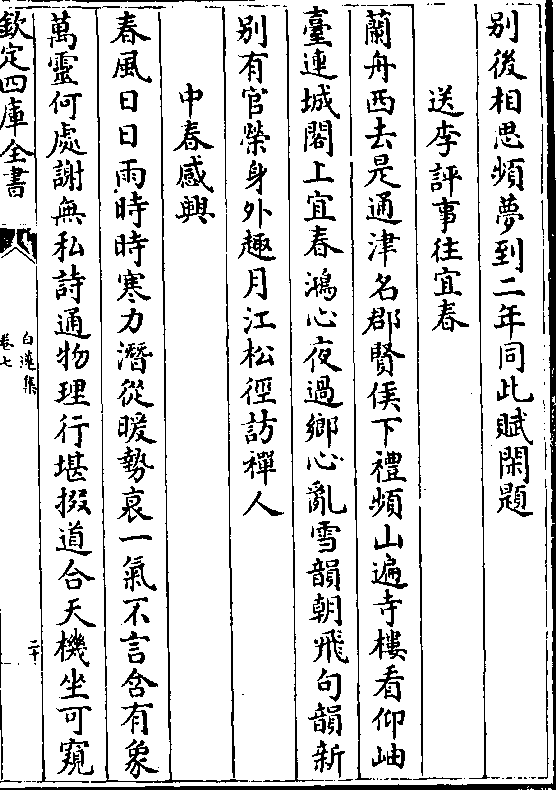 别後相思頻夢到二年同此賦閑題
送李評事往宜春
蘭舟西去是通津名郡賢侯下禮頻山遍寺樓看仰岫
臺連城閣上宜春鴻心夜過鄉心亂雪韻朝飛句韻新
别有官榮身外趣月江松徑訪禪人
中春感興
春風日日雨時時寒力潛從暖勢衰一氣不言含有象
萬靈何處謝無私詩通物理行堪掇道合天機坐可窺
欽定四庫全書
白蓮集
卷七
二十